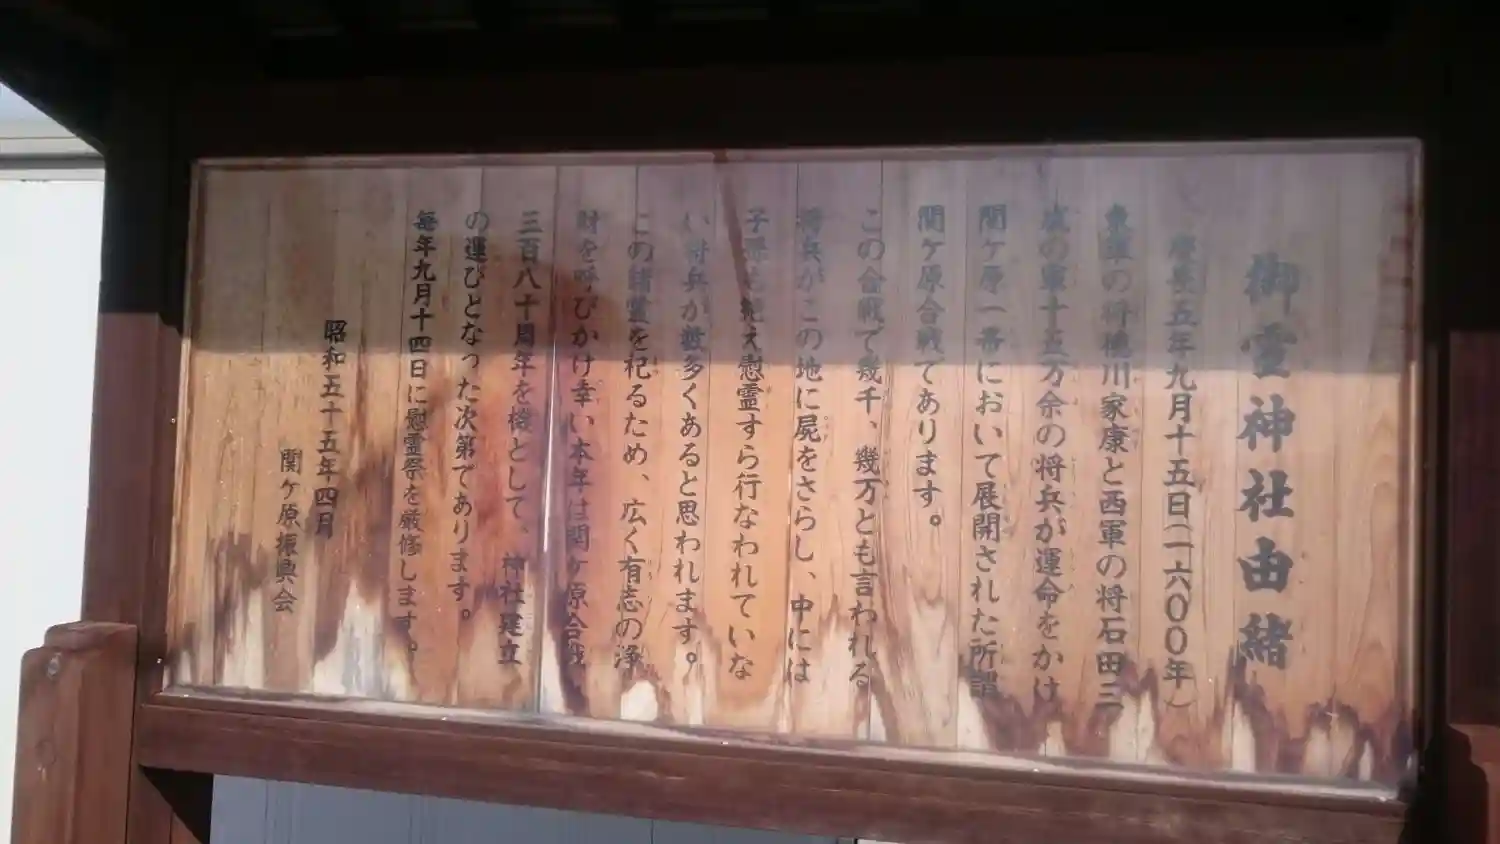 御霊神社由緒
慶長五年九月十五日(一六〇〇年)
東軍の将徳川家康と西軍の将石田三
成の軍十五万余の将兵が運命をかけ
関ケ原一番において展開された所謂
関ケ原合戦であります。
この合戦で幾千、幾万とも言われる
将兵がこの地に屍をさらし、中には
子孫も絶え慰霊すら行なわれていな
い将兵が数多くあると思われます。
この諸霊を祀るため、広く有志の浄
財を呼びかけ幸い本年は関ケ原合戦
三百八十周年を機として、神社建立
の運びとなった次第であります。
毎年九月十四日に慰霊祭を厳修します。
昭和五十五年四月
関ケ原振興会